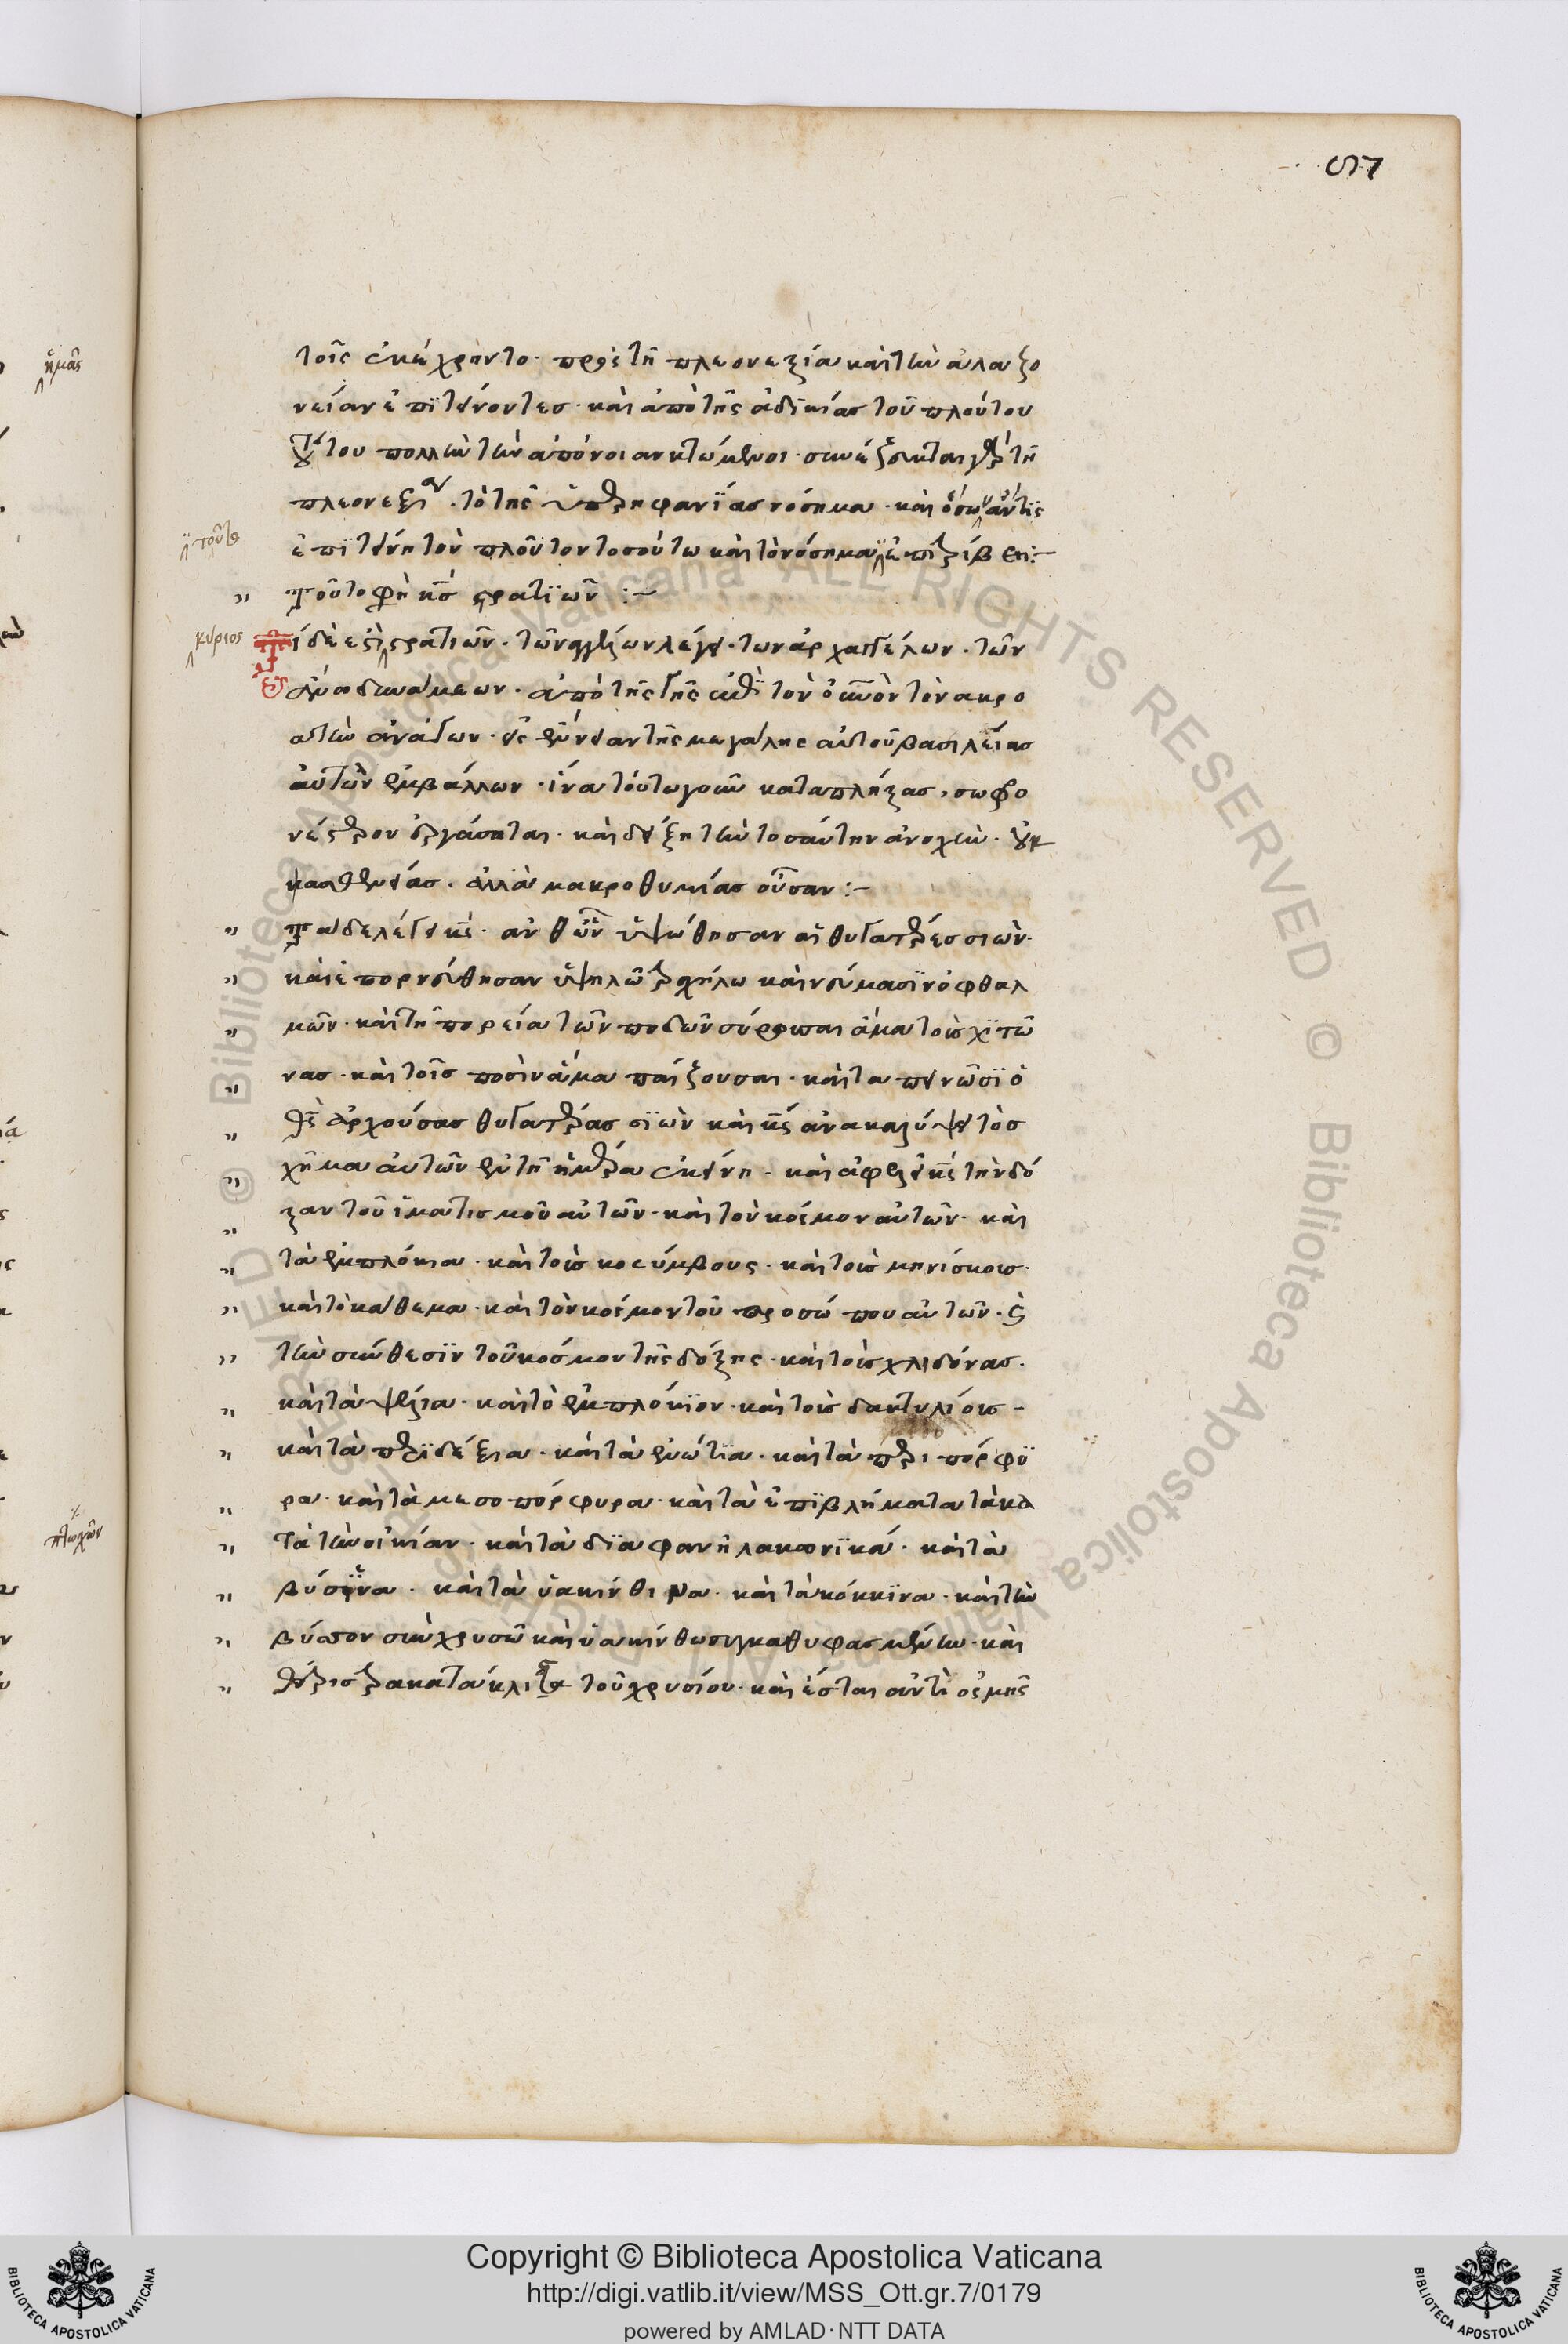 τοῖς ἐκέχρηντο· πρὸς τῆ πλεονεξία καὶ τὴν ἀλαζο
νείαν ἐπϊτείνοντες· καὶ ἀπὸ τῆς ἀδϊκίας τοῦ πλούτου
τούτου πολλὴν τὴν ἀπόνοιαν κτώμενοι· συνέζευκται γὰρ τῆ
πλεονεξία· τὸ τῆς ὑπερηφανΐας νόσημα· καὶ ὅσω ἄν τϊς
ἐπϊτείνη τὸν πλοῦτον τοσούτω καὶ τὸ νόσημα ἐπιτρίβει:–
Τοῦτό φησι κς στρατϊῶν :–
κύριος
Τί δέ ἐστι στρατιῶν· τῶν ἀγγέλων λέγει· τῶν ἀρχαγγέλων· τῶν
ἄνω δυνάμεων· ἀπὸ τῆς γῆς ἐπὶ τὸν οὐνὸν τὸν ἀκρο
ατὴν ἀνάγων· εἰς ἔννοιαν τῆς μεγάλης αὐτοῦ βασιλείας
αὐτὸν ἐμβάλλων· ἵνα τούτω γοῦν καταπλήξας, σωφρο
νέστερον ἐργάσηται· καὶ δείξη τὴν τοσαύτην ἀνοχὴν· οὐκ
ἀσθενείας· ἀλλὰ μακροθυμίας οὖσαν:–
Τάδε λέγει κς· ἀνθ ὧν ὑψώθησαν αἱ θυγατέρες σιὼν·
καὶ ἐπορεύθησαν ὑψηλῶ τραχήλω καὶ νεύμασϊν ὀφθαλ
μῶν· καὶ τῆ πορεία τῶν ποδῶν σύρουσαι ἅμα τοὺς χϊτῶ
νας· καὶ τοῖς ποσὶν ἅμα παίζουσαι· καὶ ταπεινώσϊ ὁ
θς ἀρχούσας θυγατέρας σϊὼν καὶ κς ἀνακαλύψει τὸ σ
χῆμα αὐτῶν ἐν τῆ ἡμέρα ἐκείνη· καὶ ἀφελεῖ κς τὴν δό
ξαν τοῦ ἱματισμοῦ αὐτῶν· καὶ τὸν κόσμον αὐτῶν· καὶ
τὰ ἐμπλόκια· καὶ τοὺς κοσύμβους· καὶ τοὺς μηνίσκους·
καὶ τὸ κάθεμα· καὶ τὸν κόσμον τοῦ προσώπου αὐτῶν· καὶ
τὴν σύνθεσϊν τοῦ κόσμου τῆς δόξης· καὶ τοὺς χλιδόνας·
καὶ τὰ ψέλια· καὶ τὸ ἐμπλόκϊον· καὶ τοὺς δακτυλίους –
καὶ τὰ περϊδέξια· καὶ τὰ ἐνώτϊα· καὶ τὰ περιπόρφϋ
ρα· καὶ τὰ μεσοπόρφυρα· καὶ τὰ ἐπϊβλήματα τὰ κα
τὰ τὴν οἰκίαν· καὶ τὰ δϊαφανῆ λακωνϊκά· καὶ τὰ
βύσσϊνα· καὶ τὰ ὑακίνθινα· καὶ τὰ κόκκϊνα· καὶ τὴν
βύσσον σὺν χρυσῶ καὶ ὑακίνθω συγκαθυφασμένην· καὶ
θέριστρα κατάκλιτα τοῦ χρυσίου· καὶ ἔσται ἀντὶ ὀσμῆς
Copyright © Biblioteca Apostolica Vaticana
http://digi.vatlib.it/view/MSS_Ott.gr.7/0179
powered by AMLAD·NTT DATA